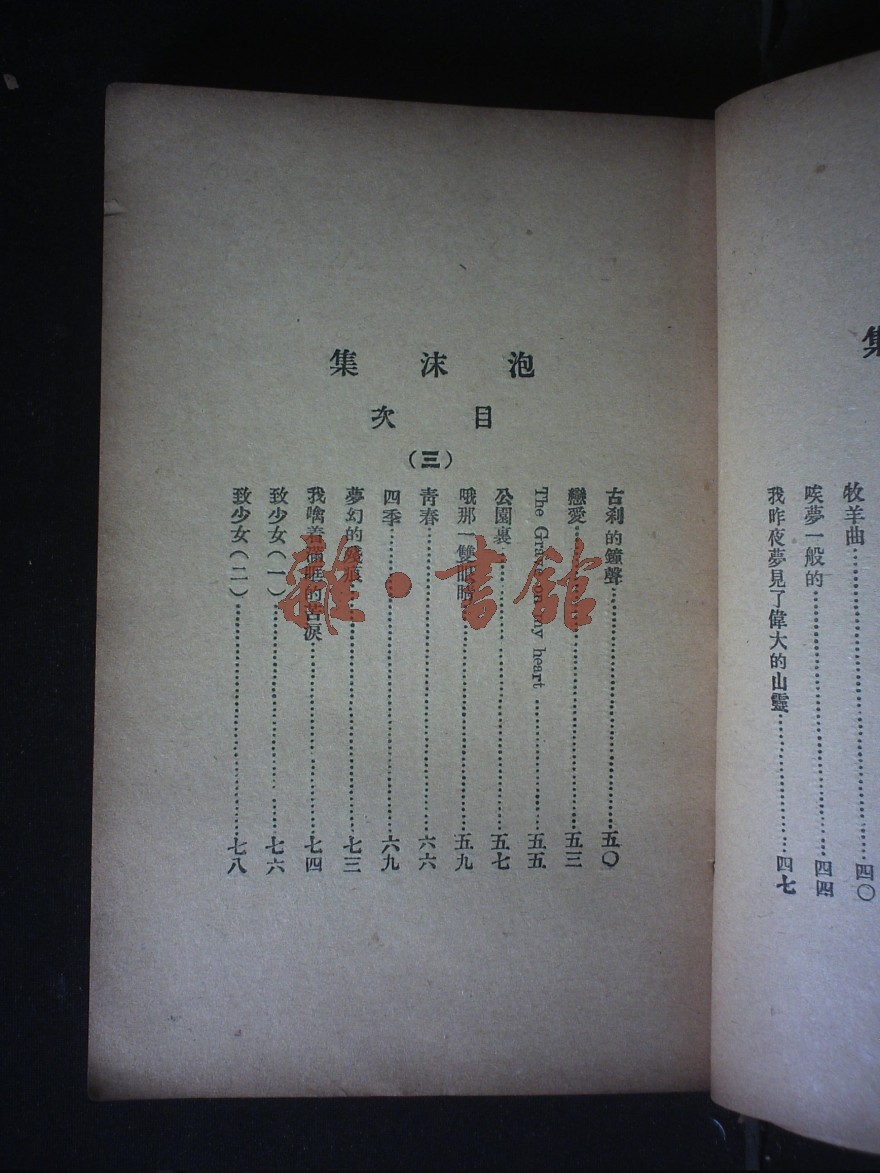 集
牧羊曲…………四〇
唉夢一般的…………四四
我昨夜夢見了偉大的山靈…………四七
泡沫集
目次
(三)
古刹的鐘聲…………五〇
戀愛…………五三
The Grave on my heart…………五五
公園裏…………五七
哦那一雙眼睛…………五九
青春…………六六
四季…………六九
夢幻的殘痕…………七三
我噙着滿眶的苦淚…………七四
致少女(一)…………七六
致少女(二)…………七八
雜·書館